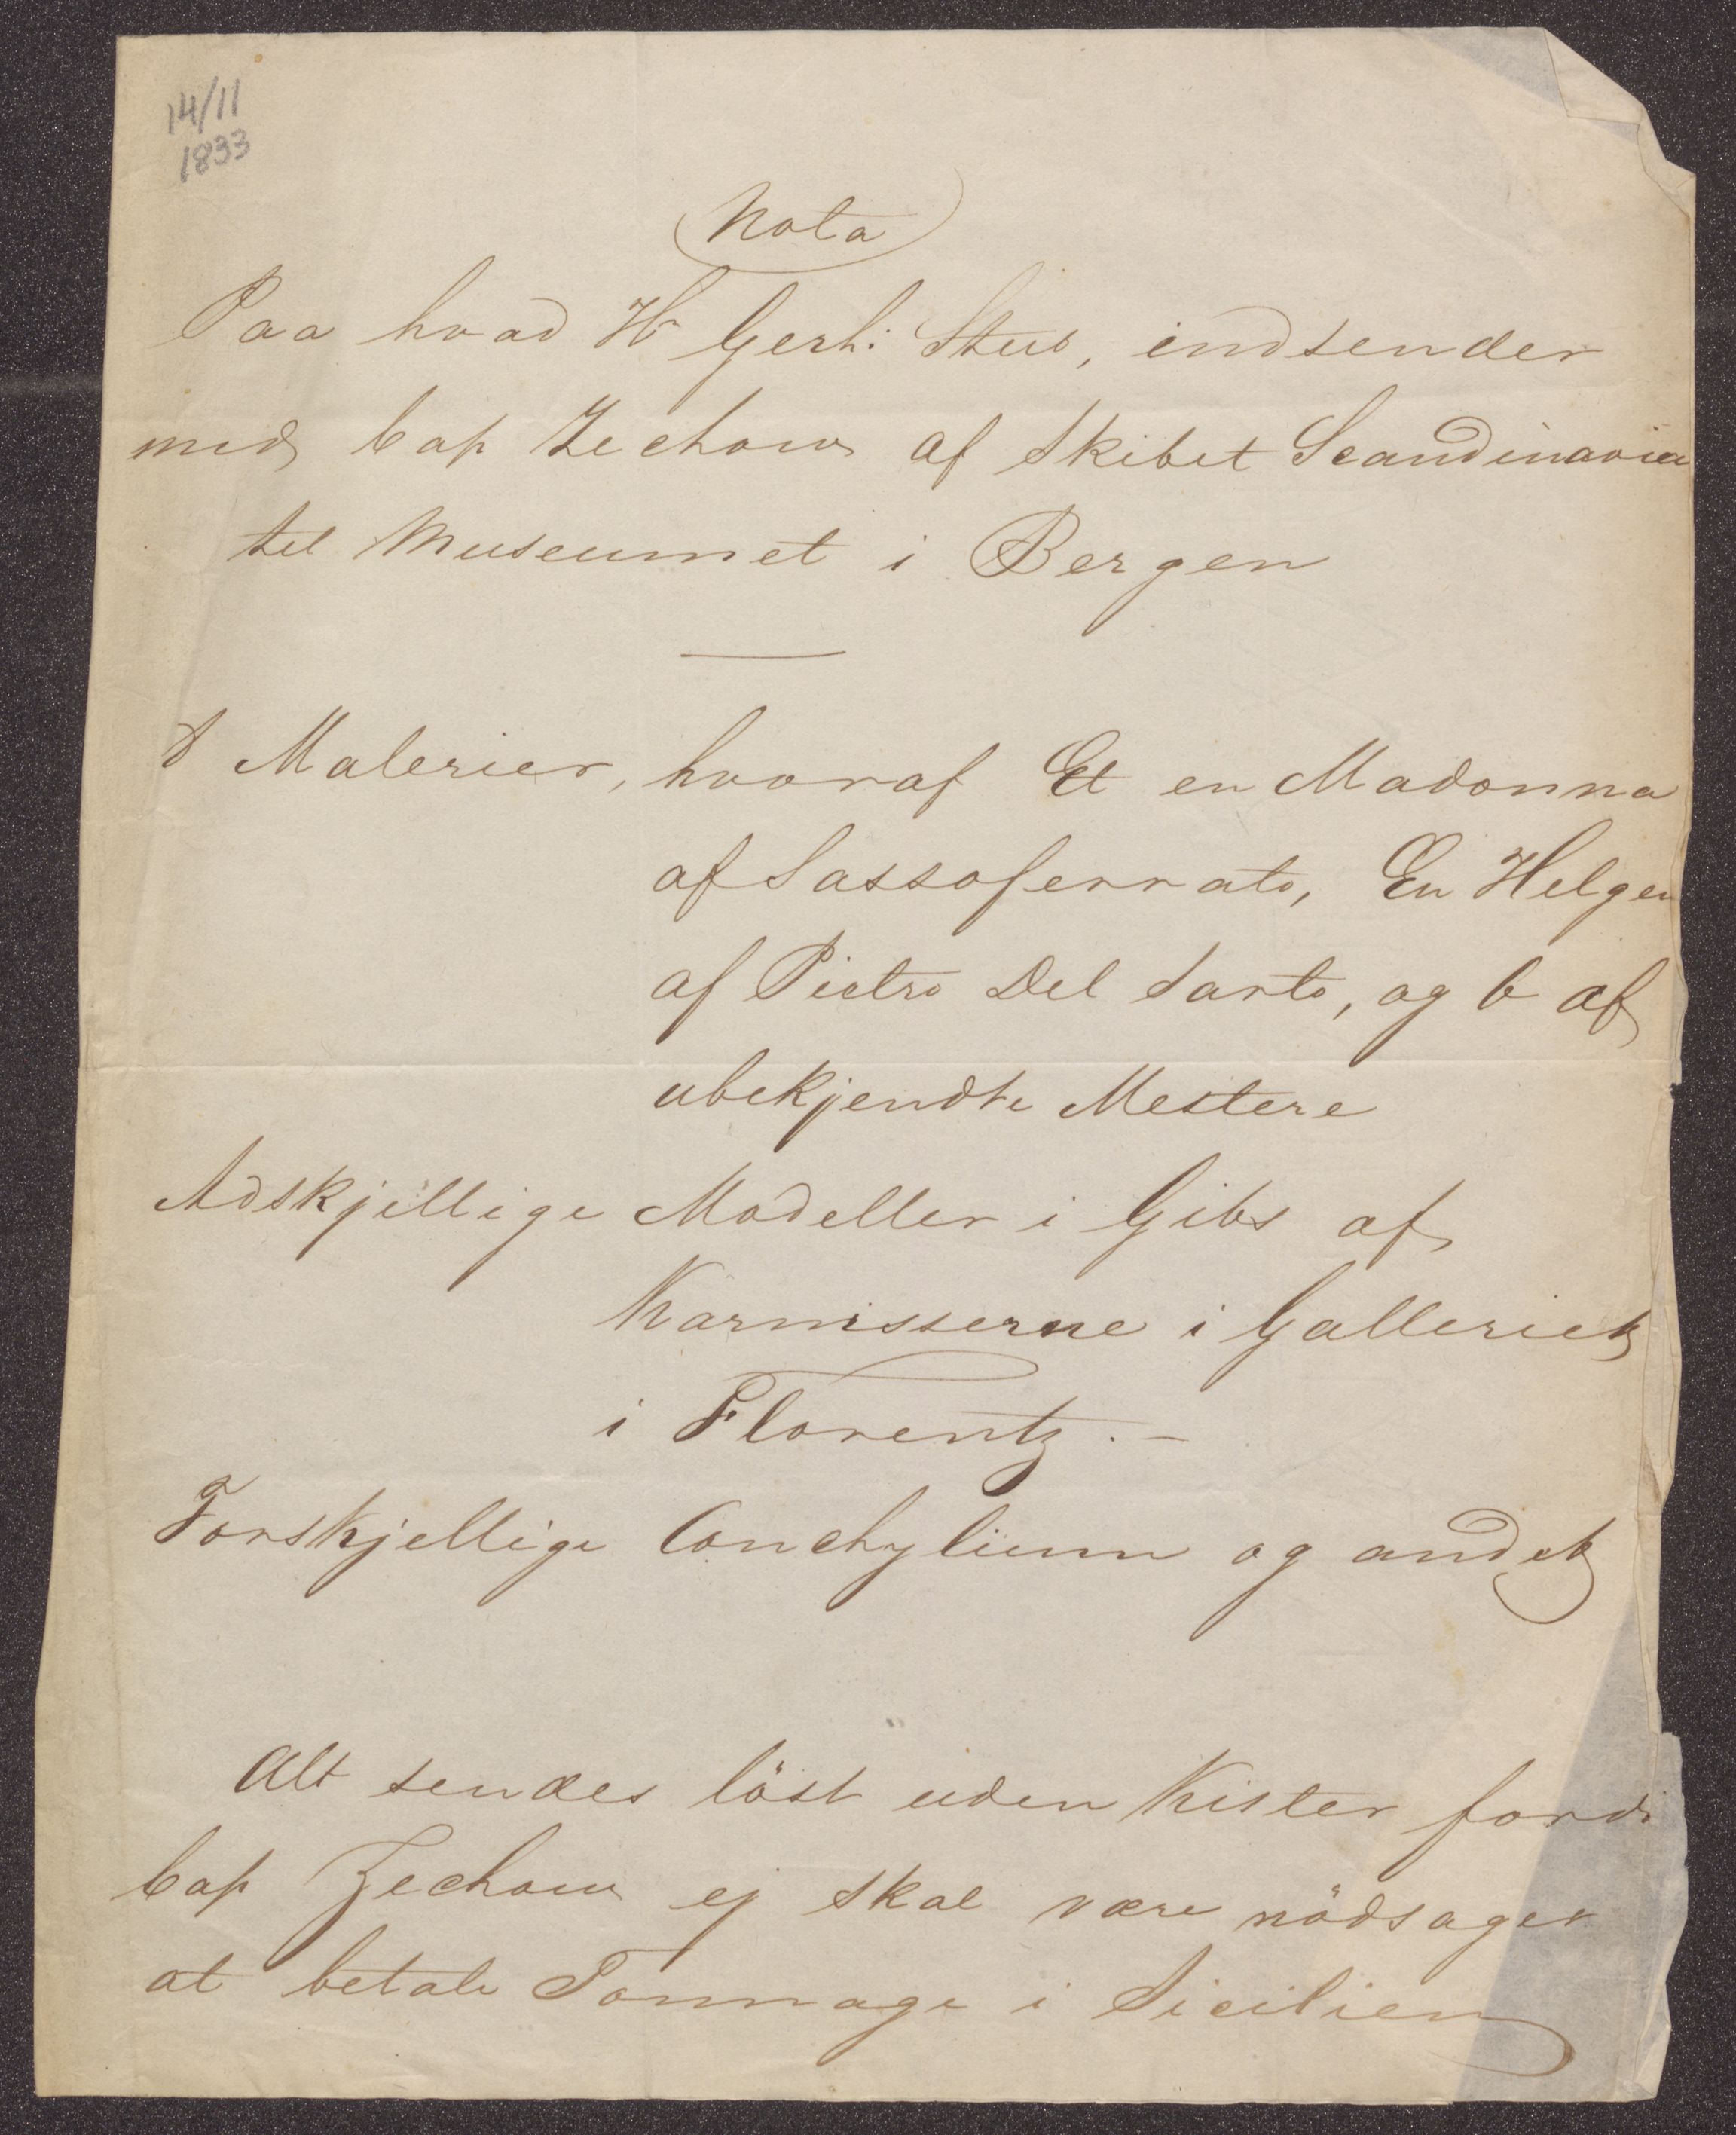 14/11
1833
Nota
Paa hvad Hr Gerh: Stub, indsender
med Cap Zechow af Skibet Scandinavia
til Museumet i Bergen
8 Malerier, hvoraf Et en Madonna
af Sassoferrato, En Helgen
af Pietro Del Sarto, og 6 af
ubekjendte Mestere
Adskjillige Modeller i Gibs af
Karnisserne i Galleriet
i Florentz. -
Forskjellige Conchylium og andet
Alt sendes löst uden Kister fordi
Cap Zechow ej skal være nödsaget
at betale Tonnage i Sicilien